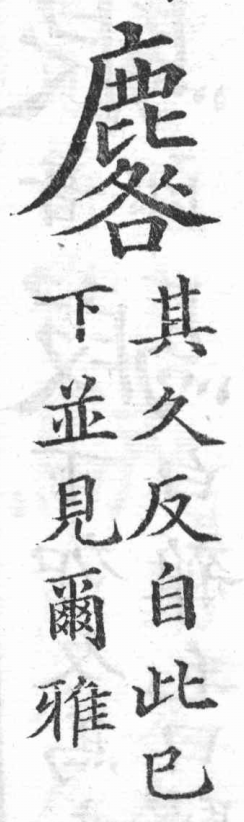 麔
其久反自此已
下並見爾雅